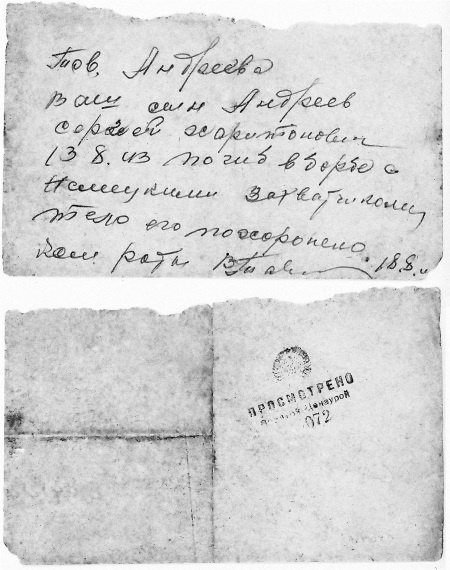 Тов. Андреева
Ваш сын Андреев
Сергей Харитонович
13 8. 43 погиб в борьбе с
Немецкими захватчиками
тело его похоронено
Ком роты 18.8.
ПРОСМОТРЕНО
Военной Цензурой
072